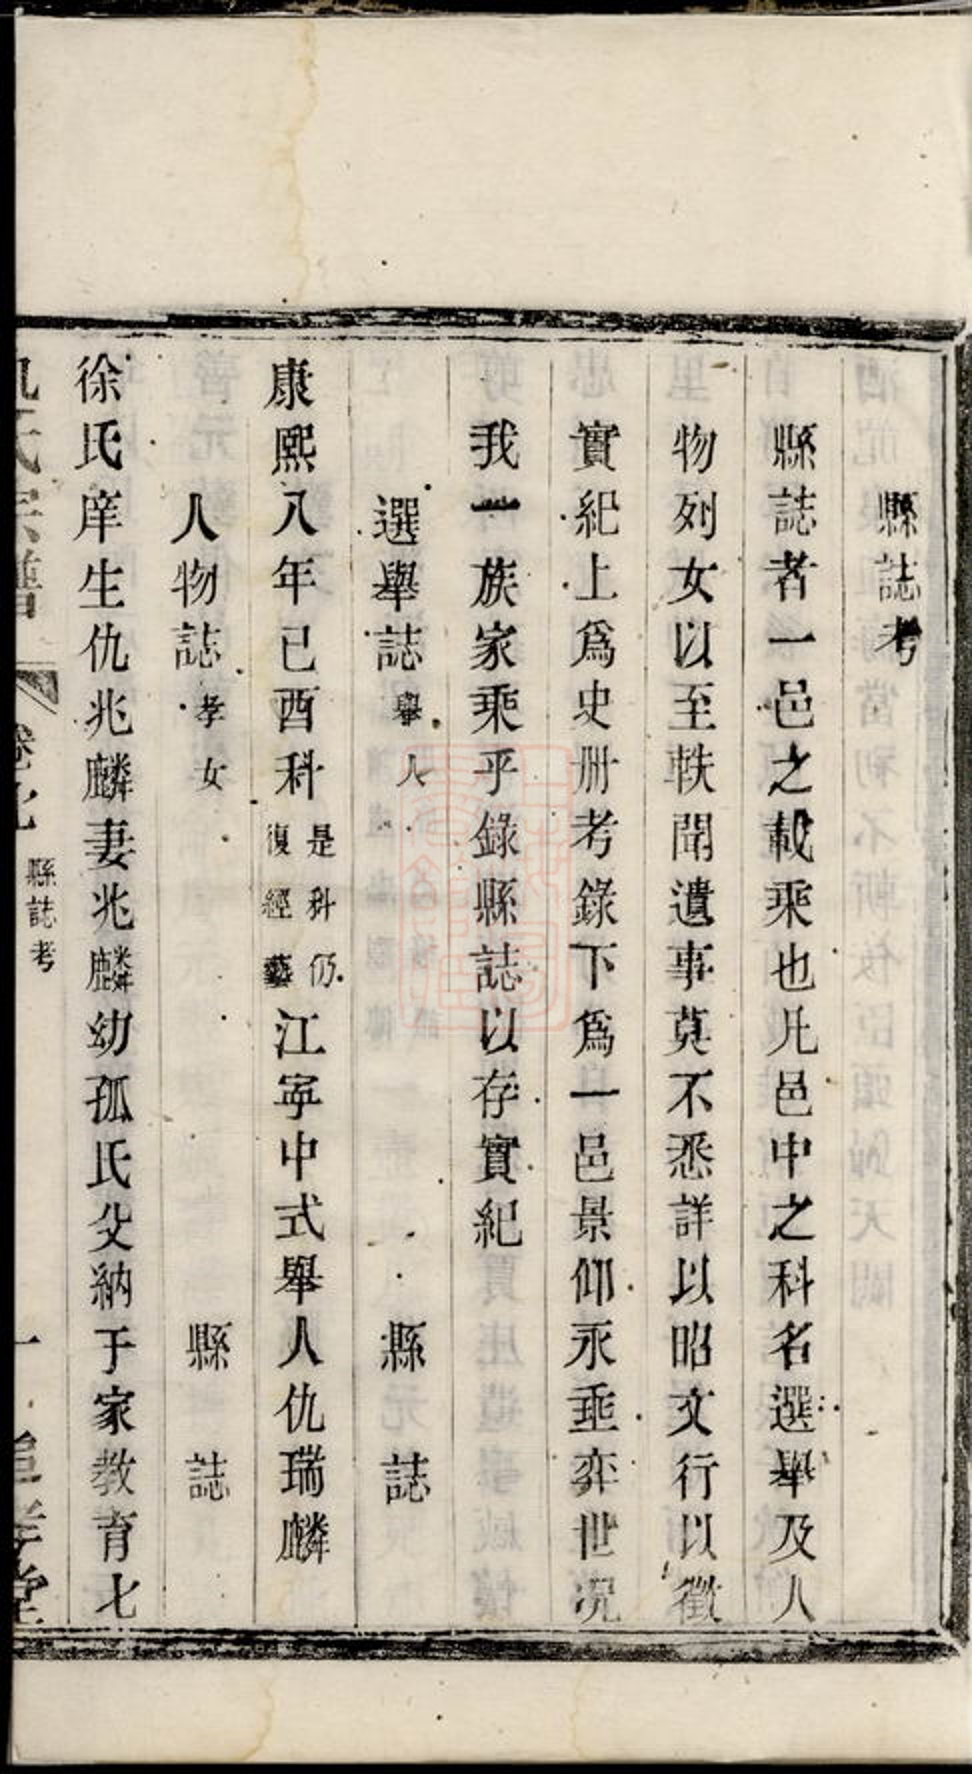 縣誌考
縣誌者一邑之載乘也凡邑中之科名選舉及人
物列女以至軼聞遺事莫不悉詳以昭文行以徵
實紀上爲史冊考錄下爲一邑景仰永垂弈世况
我一族家乘乎錄縣誌以存實紀
選舉誌舉人 縣誌
康熙八年已酉科是科仍復經藝江寧中式舉人仇瑞麟
人物誌孝女 縣誌
徐氏庠生仇兆麟妻兆麟幼孤氏父納于家教育七
氏宗譜 卷七 縣誌考 一 追孝堂